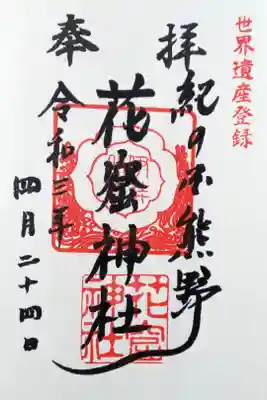 世界遺産登録
拝
紀の国熊野
花窟神社
奉
令和三年
四月二十四日
花窟
神社